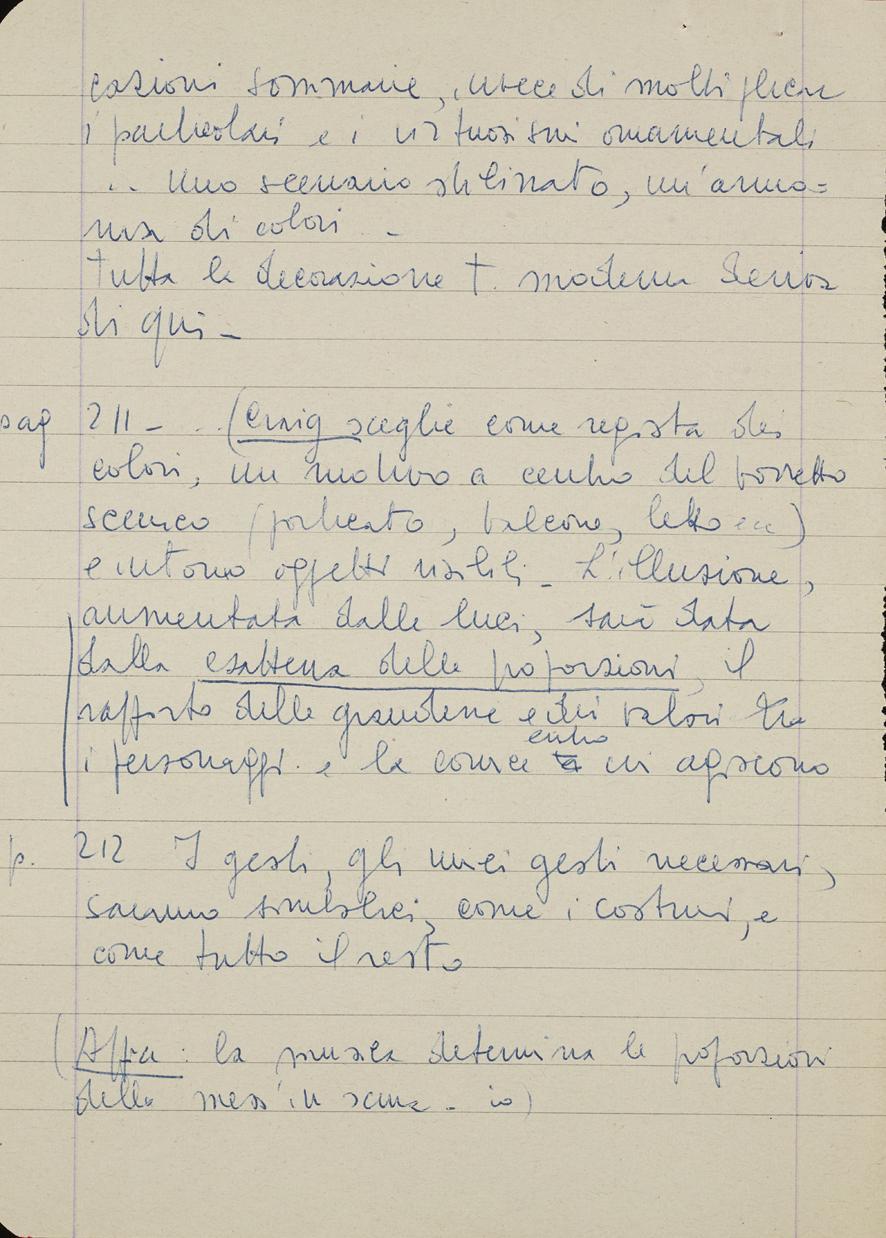 cazioni sommarie, invece di moltiplicare
i particolari e i virtuosismi ornamentali
.. Uno scenario stilizzato, un'armo=
nia di colori -
Tutta la decorazione t. moderna deriva
di qui -
pag 211 - .. (Craig sceglie come regista dei
colori, un motivo a centro del
scenico (porticato, balcone, letto ecc)
e intorno oggetti visibili - L'illusione,
aumentata dalle luci, sarà data
dalla esattezza delle proporzioni, il
rapporto delle grandezze e dei valori tra
i personaggi e la cornice entro cui agiscono
p. 212 I gesti, gli unici gesti necessari,
saranno simbolici, come i costumi, e
come tutto il resto
(Appia : la musica determina le proporzioni
della mess'in scena - io)